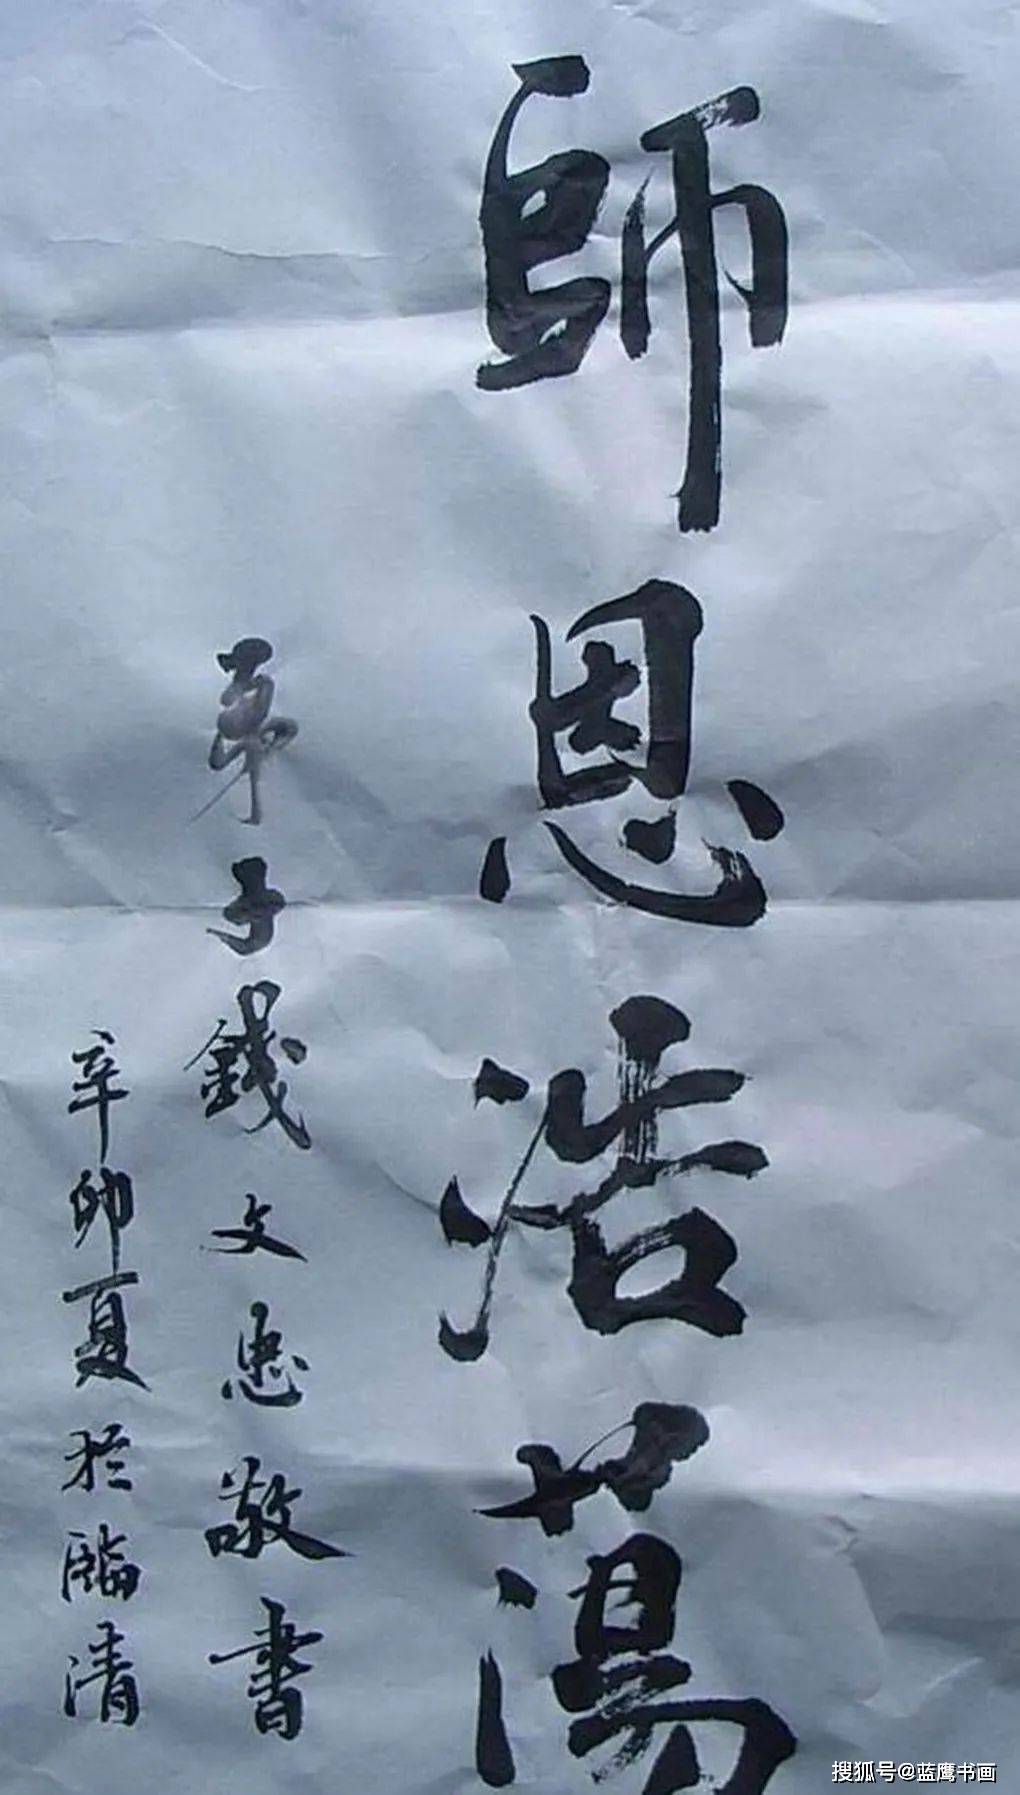 師恩浩蕩
弟子錢文忠敬書
辛卯夏於臨清
搜狐号@蓝鹰书画